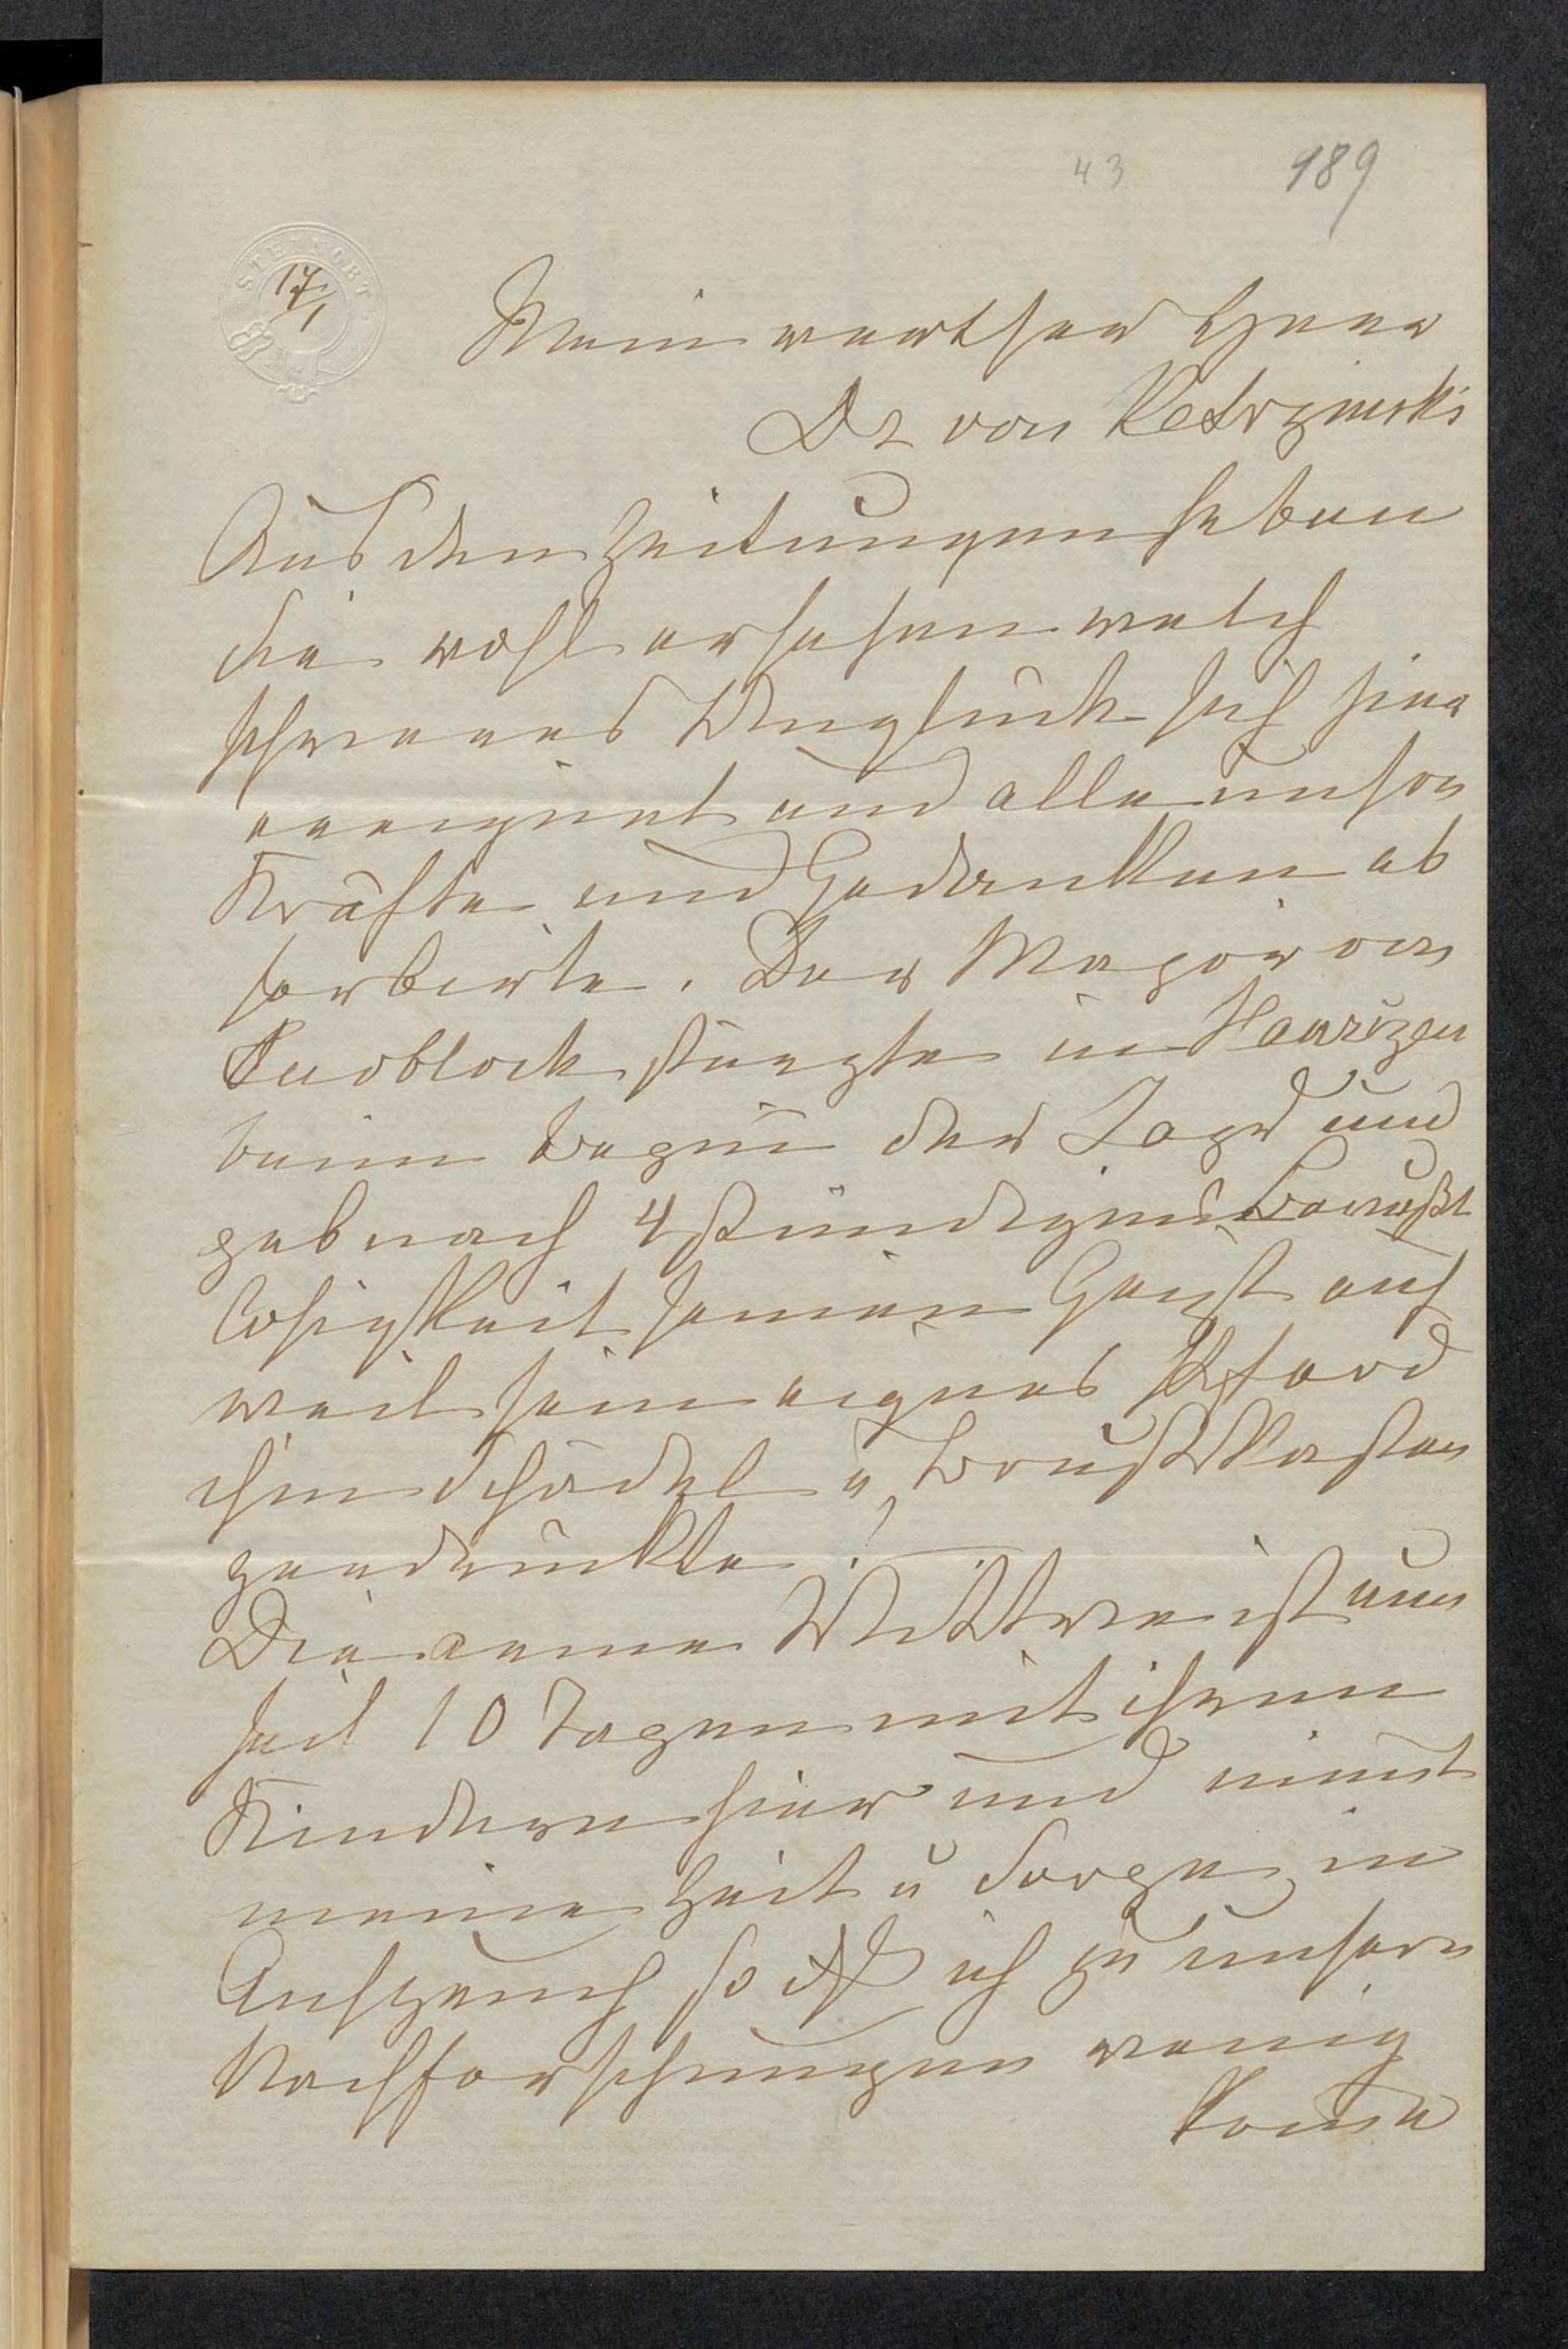 43 189
STEINORT
17/1
Mein werther Herr
Dr von Ketrzinski
Aus den Zeitungen haben
Sie wohl ersehen welch
schweres Unglück sich hier
ereignet und alle unsre
Kräfte und Gedanken ab
sorbirte. Der Major von
Knoblock stürzte in
beim Begin der Jagd und
gab nach 4 stündigem Bewußt
losigkeit seinen Geist auf
weil sein eignes Pferd
ihm Schädel u Brustkasten
zerdrückte!
Die arme Wittwe ist nun
seit 10 Tagen mit ihren
Kindern hier und nimt
meine Zeit u Sorge in
Anspruch so dß ich zu unsern
Nachforschungen wenig